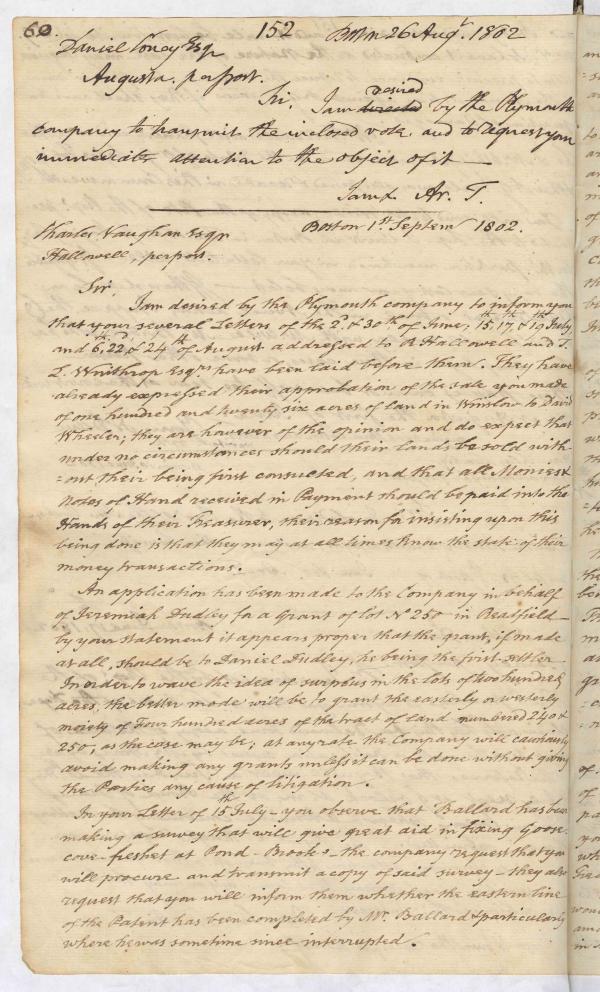 60. 152 Boston 26 Augt. 1802
Daniel Coney Esqr
Augusta. per post.
desired
Sir, I am directed by the Plymouth
company to transmit the inclosed vote and to request your
immediate attention to the object of it —
I am &. Ar. T.
Charles Vaughan Esqr Boston 1st Septem 1802.
Hallowell, per post.
Sir,
I am desired by the Plymouth company to inform you
that your several Letters of the 2d. & 30th of June, 15th, 17th, & 19th July,
and 6th, 22d, & 24th of August addressed to R Hallowell and T.
L. Winthrop Esqrs have been laid before them. They have
already expressed their approbation of the sale you made
of one hundred and twenty six acres of land in Winslow to David
Wheeler; they are however of the opinion and do expect that
under no circumstances should their lands be sold with-
=out their being first consulted, and that all Monies &
Notes of Hand received in Payment should be paid into the
Hands of their Treasurer, their reason for insisting upon this
being done is that they may at all times know the state of their
money transactions.
An application has been made to the Company in behalf
of Jeremiah Dudley for a Grant of lot No 250 in Readfield —
by your statement it appears proper that the grant, if made
at all, should be to Daniel Dudley, he being the first settler
In order to wave the idea of surplus in the lots of two hundred
acres, the better mode will be to grant the easterly or westerly
moiety of Four hundred acres of the tract of land numbered 240 &
250, as the case may be; at any rate the Company will cautiously
avoid making any grants unless it can be done without giving
the Parties any cause of litigation.
In your Letter of 15th July — you observe that Ballard has been
making a survey that will give great aid in fixing Goose
cove - freshet at Pond - Brook - the company request that you
will procure and transmit a copy of said survey — they also
request that you will inform them whether the eastern line
of the Patent has been completed by Mr. Ballard & particularly
where he was sometime since interrupted.